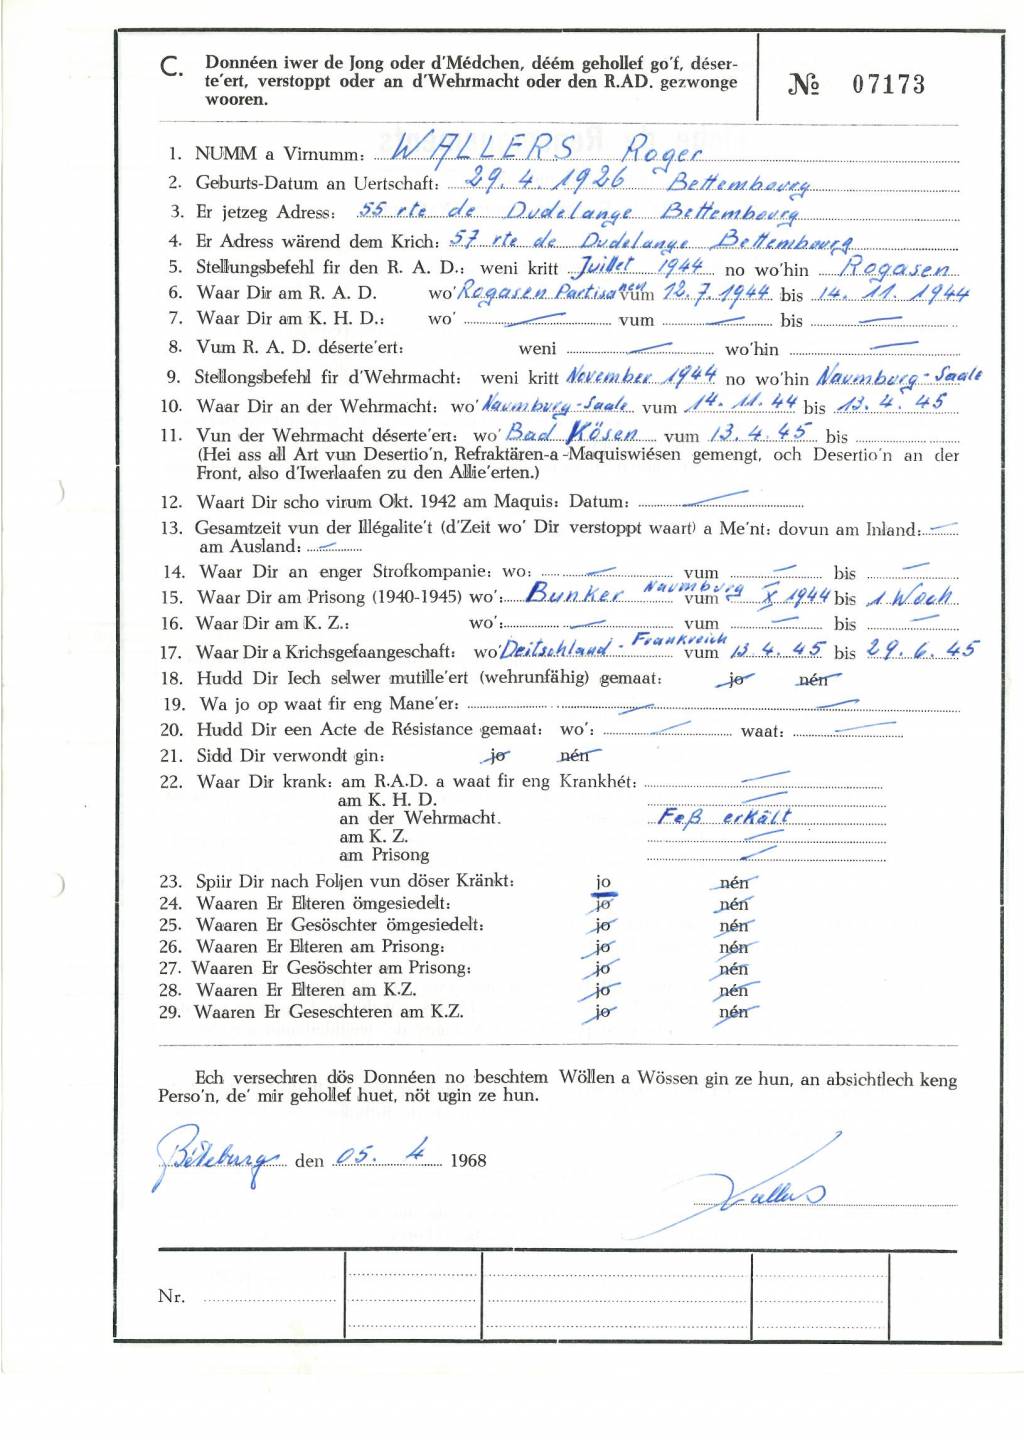 C. Donnéen iwer de Jong oder d'Médchen, déém gehollef go'f, déser-
te'ert, verstoppt oder an d'Wehrmacht oder den R.AD. gezwonge
wooren.
№ 07173
1. NUMM a Virnumm: WALLERS Roger
2. Geburts-Datum an Uertschaft: 29. 4. 1926 Bettembourg
3. Er jetzeg Adress: 55 rte de Dudelange Bettembourg
4. Er Adress wärend dem Krich: 57 rte de Dudelange Bettembourg
5. Stellungsbefehl fir den R. A. D.: weni kritt Juillet 1944 no wo'hin Rogasen
6. Waar Dir am R. A. D. wo' Rogasen Partisanen vum 12.7.1944 bis 14. 11. 1944
7. Waar Dir am K. H. D.: wo' — vum — bis —
8. Vum R. A. D. déserte'ert: weni — wo'hin —
9. Stellongsbefehl fir d'Wehrmacht: weni kritt November 1944 no wo'hin Naumburg-Saale
10. Waar Dir an der Wehrmacht: wo' Naumburg-Saale vum 14. 11. 44 bis 13. 4. 45
11. Vun der Wehrmacht déserte'ert: wo' Bad Kösen vum 13.4.45 bis
(Hei ass all Art vun Desertio'n, Refraktären-a-Maquiswiésen gemengt, och Desertio'n an der
Front, also d'Iwerlaafen zu den Allie'erten.)
12. Waart Dir scho virum Okt. 1942 am Maquis: Datum: —
13. Gesamtzeit vun der Illégalite't (d'Zeit wo' Dir verstoppt waart) a Me'nt: dovun am Inland: —
am Ausland: —
14. Waar Dir an enger Strofkompanie: wo: — vum — bis —
15. Waar Dir am Prisong (1940-1945) wo': Bunker Naumburg vum X 1944 bis 1 Woch
16. Waar Dir am K. Z.: wo': — vum — bis —
17. Waar Dir a Krichsgefaangeschaft: wo' Deitschland - Frankreich vum 13. 4. 45 bis 29. 6. 45
18. Hudd Dir Iech selwer mutille'ert (wehrunfähig) gemaat: jo nén
19. Wa jo op waat fir eng Mane'er: — —
20. Hudd Dir een Acte de Résistance gemaat: wo': — waat: —
21. Sidd Dir verwondt gin: jo nén
22. Waar Dir krank: am R.A.D. a waat fir eng Krankhét: —
am K. H. D. —
an der Wehrmacht. Feß erkält
am K. Z. —
am Prisong —
23. Spiir Dir nach Foljen vun döser Kränkt: jo nén
24. Waaren Er Elteren ömgesiedelt: jo nén
25. Waaren Er Gesöschter ömgesiedelt: jo nén
26. Waaren Er Elteren am Prisong: jo nén
27. Waaren Er Gesöschter am Prisong: jo nén
28. Waaren Er Elteren am K.Z. jo nén
29. Waaren Er Geseschteren am K.Z. jo nén
Ech versechren dös Donnéen no beschtem Wöllen a Wössen gin ze hun, an absichtlech keng
Perso'n, de' mir gehollef huet, nöt ugin ze hun.
den 05. 4 1968
Wallers
Nr.